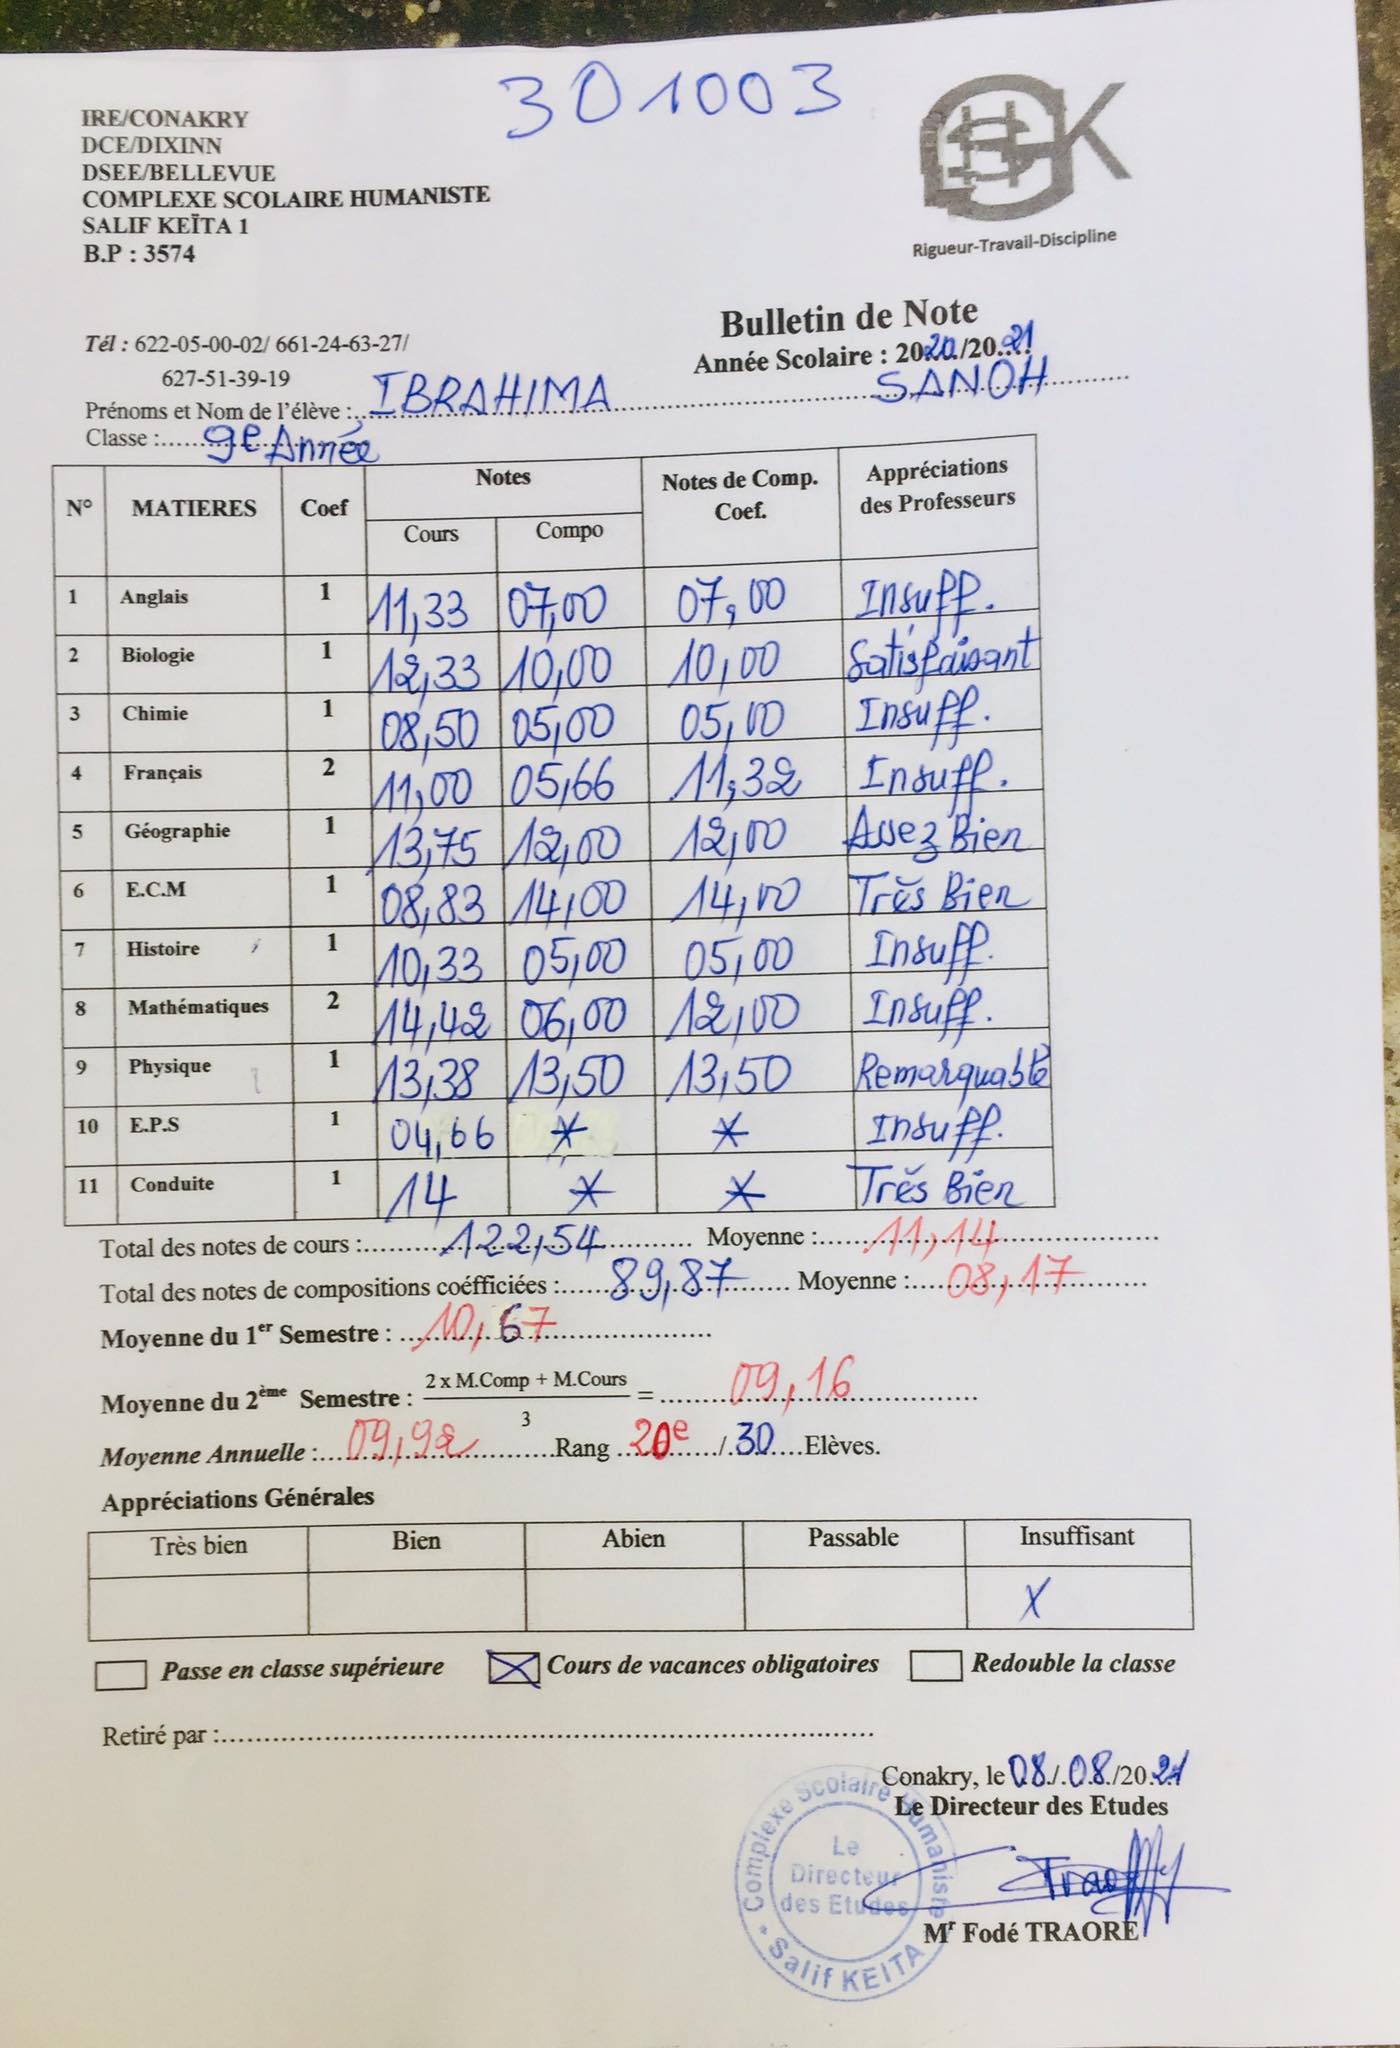 301003
IRE/CONAKRY
DCE/DIXINN
DSEE/BELLEVUE
COMPLEXE SCOLAIRE HUMANISTE
SALIF KEÏTA 1
B.P : 3574
Rigueur-Travail-Discipline
Bulletin de Note
Tél : 622-05-00-02/ 661-24-63-27/
627-51-39-19
Année Scolaire : 2020/2021
Prénoms et Nom de l'élève : IBRAHIMA SANOH
Classe : 9e Année
N° MATIERES Coef Notes Notes de Comp. Coef. Appréciations des Professeurs
Cours Compo
1 Anglais 1 11,33 07,00 07,00 Insuff.
2 Biologie 1 12,33 10,00 10,00 Satisfaisant
3 Chimie 1 08,50 05,00 05,00 Insuff.
4 Français 2 11,00 05,66 11,32 Insuff.
5 Géographie 1 13,75 12,00 12,00 Assez Bien
6 E.C.M 1 08,83 14,00 14,00 Très Bien
7 Histoire 1 10,33 05,00 05,00 Insuff.
8 Mathématiques 2 14,42 06,00 12,00 Insuff.
9 Physique 1 13,38 13,50 13,50 Remarquable
10 E.P.S 1 04,66 * * Insuff.
11 Conduite 1 14 * * Très Bien
Total des notes de cours : 122,54 Moyenne : 11,14
Total des notes de compositions coéfficiées : 89,87 Moyenne : 08,17
Moyenne du 1er Semestre : 10,67
Moyenne du 2ème Semestre : 2 x M.Comp + M.Cours / 3 = 09,16
Moyenne Annuelle : 09,92 Rang 20e / 30 Elèves.
Appréciations Générales
Très bien Bien Abien Passable Insuffisant
X
Passe en classe supérieure Cours de vacances obligatoires Redouble la classe
Retiré par :
Conakry, le 08/08/2021
Le Directeur des Etudes
Complexe Scolaire Humaniste
Le
Directeur
des Etudes
* Salif KEITA
Mr Fodé TRAORE